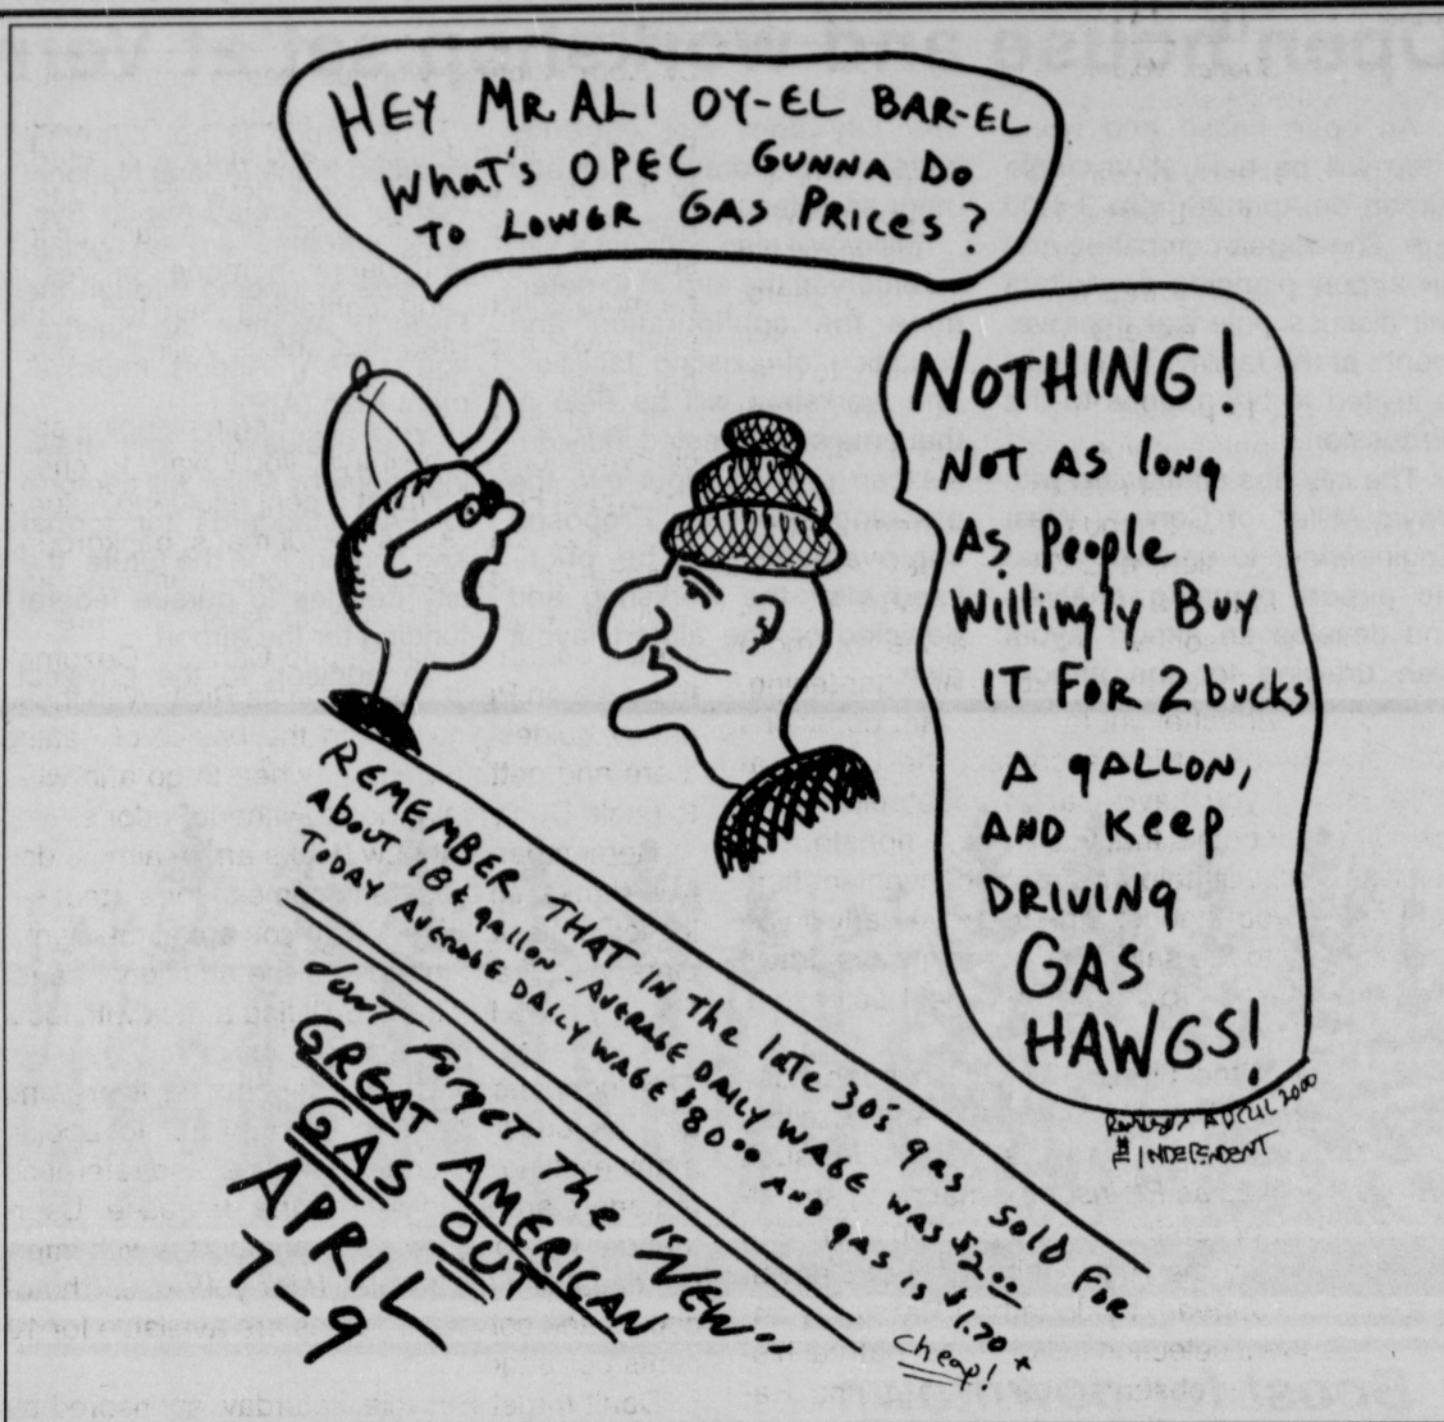 HEY MR ALI OY-EL BAR-EL
WHAT'S OPEC GUNNA DO
TO LOWER GAS PRICES?
NOTHING!
NOT AS long
AS People
Willingly BUY
IT FOR 2 bucks
A GALLON,
AND Keep
DRIVING
GAS
HAWGS!
APRIL 2000
INDEPENDENT
REMEMBER THAT IN The late 30's gas sold FOR
About 18¢ gallon - AVERAGE DAILY WAGE WAS $2.00
TODAY AVERAGE DAILY WAGE $80.00 AND gas is $1.70 *
cheap!
dont Forget The "NEW"
GREAT AMERICAN
GAS OUT
APRIL
7-9